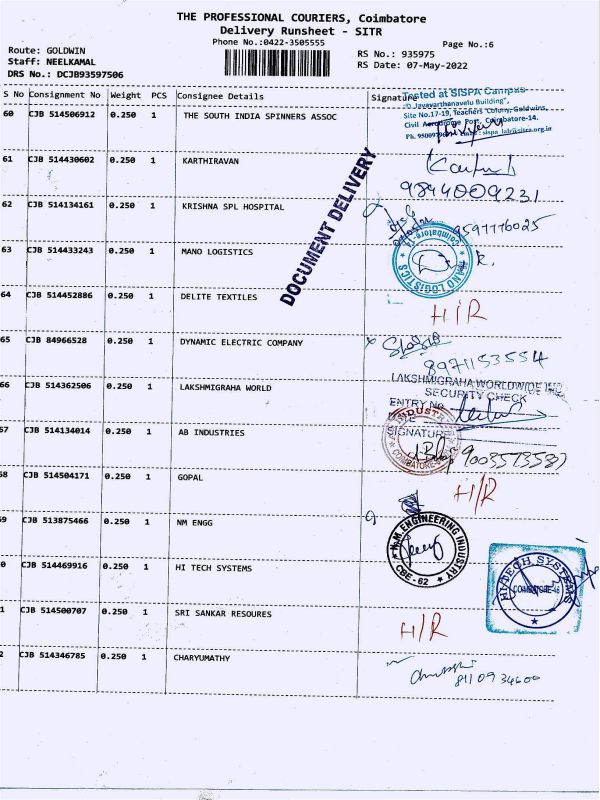 THE PROFESSIONAL COURIERS, Coimbatore
Delivery Runsheet - SITR
Phone No.:0422-3505555
Page No.:6
Route: GOLDWIN
Staff: NEELKAMAL
DRS No.: DCJB93597506
RS No.: 935975
RS Date: 07-May-2022
S No Consignment No Weight PCS Consignee Details Signature
60 CJB 514506912 0.250 1 THE SOUTH INDIA SPINNERS ASSOC
Tested at SISPA Campus
"D Jayavarthanavelu Building",
Site No.17-19, Teachers Colony, Goldwins,
Civil Aerodrome Post, Coimbatore-14.
61 CJB 514430602 0.250 1 KARTHIRAVAN
9844009231
DOCUMENT DELIVERY
62 CJB 514134161 0.250 1 KRISHNA SPL HOSPITAL
9597776025
63 CJB 514433243 0.250 1 MANO LOGISTICS
MANO LOGISTICS
64 CJB 514452886 0.250 1 DELITE TEXTILES
H/R
65 CJB 84966528 0.250 1 DYNAMIC ELECTRIC COMPANY
8971153554
66 CJB 514362506 0.250 1 LAKSHMIGRAHA WORLD
LAKSHMIGRAHA WORLDWIDE INC
SECURITY CHECK
ENTRY No
SIGNATURE
67 CJB 514134014 0.250 1 AB INDUSTRIES
9003573587
68 CJB 514504171 0.250 1 GOPAL
H/R
69 CJB 513875466 0.250 1 NM ENGG
N.M. ENGINEERING INDUSTRY
CBE - 62
0 CJB 514469916 0.250 1 HI TECH SYSTEMS
HI-TECH SYSTEMS
COIMBATORE-46
1 CJB 514500707 0.250 1 SRI SANKAR RESOURES
H/R
2 CJB 514346785 0.250 1 CHARYUMATHY
8110934600